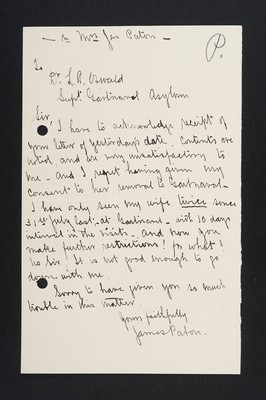 — re Mrs Jas Paton —
P.
To
Dr. L. R. Oswald
Supt. Gartnaval Asylum
Sir,
I have to acknowledge receipt of
your letter of yesterday's date. Contents are
noted, and are very unsatisfactory to
me – and I regret having given my
consent to her removal to Gartnaval –
I have only seen my wife twice since
31st July last, at Gartnaval – with 10 days
interval in the visits – and now you
make further restrictions! for what?
No Sir! It is not good enough to go
down with me.
Sorry to have given you so much
trouble in this matter.
Yours faithfully
James Paton.